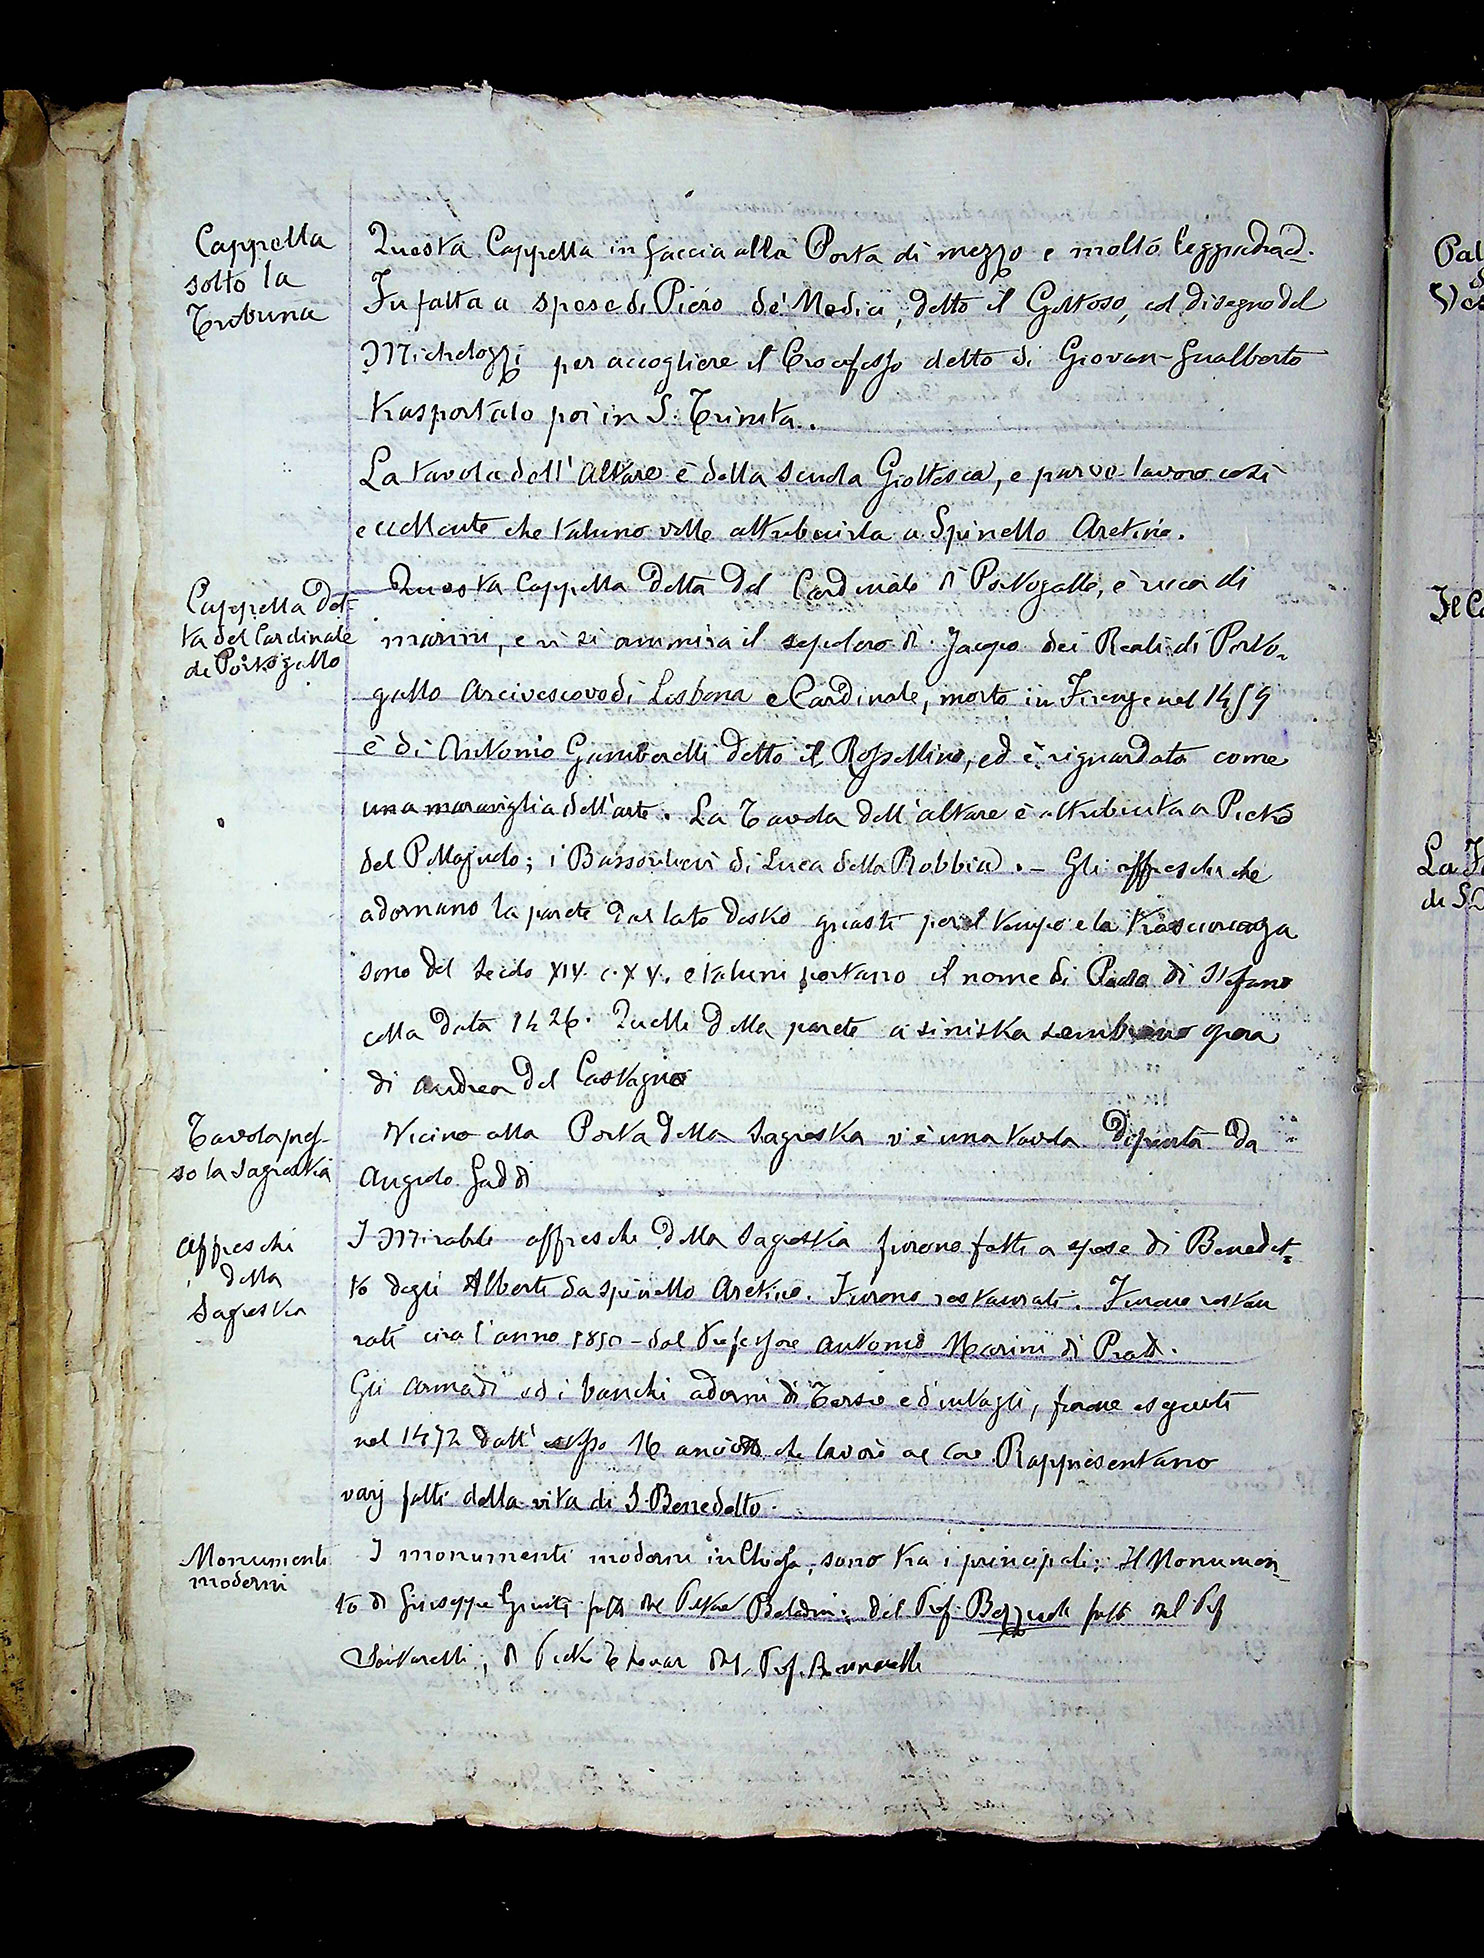 Cappella
sotto la
Tribuna
Questa Cappella in faccia alla Porta di mezzo e molto leggiadra.
Fu fatta a spese di Piero de' Medici, detto il Gottoso, col disegno del
Michelozzi per accogliere il Crocifisso detto di Giovan-Gualberto
trasportato poi in S. Trinita.
La tavola dell' Altare è della scuola Giottesca, e parve lavoro così
eccellente che taluno volle attribuirla a Spinello Aretino.
Cappella det-
ta del Cardinale
di Portogallo
Questa Cappella detta del Cardinale di Portogallo, è ricca di
marmi, e vi si ammira il sepolcro di Jacopo dei Reali di Porto-
gallo Arcivescovo di Lisbona e Cardinale, morto in Firenze nel 1459
è di Antonio Gamberelli detto il Rossellino, ed è riguardato come
una maraviglia dell'arte. La Tavola dell'altare è attribuita a Piero
del Pollajuolo; i Bassorilievi di Luca della Robbia. - Gli affreschi che
adornano la parete dal lato destro guasti per il tempo e la trascuranza
sono del secolo XIV. e XV. e taluni portano il nome di Paolo di Stefano
colla data 1426. Quelli della parete a sinistra sembrano opera
di Andrea del Castagno
Tavola pres-
so la Sagrestia
Vicino alla Porta della Sagrestia v'è una tavola dipinta da
Angelo Gaddi
Affreschi
della
Sagrestia
I Mirabili affreschi della Sagrestia furono fatti a spese di Benedet-
to degli Alberti da Spinello Aretino. Furono restaurati. Furono restau
rati circa l'anno 1850 - dal Professore Antonio Marini di Prato.
Gli armadi ed i banchi adorni di Tarsie e d'intagli, furono eseguiti
nel 1472 dall' stesso che lavorò al Coro Rappresentano
varj fatti della vita di S. Benedetto.
Monumenti
moderni
I monumenti moderni in Chiesa, sono tra i principali: Il Monumen-
to di Giuseppe Giusti fatto dal; del Prof. Bezzuoli fatto dal Prof
Santarelli; di Pietro Thouar del Prof.